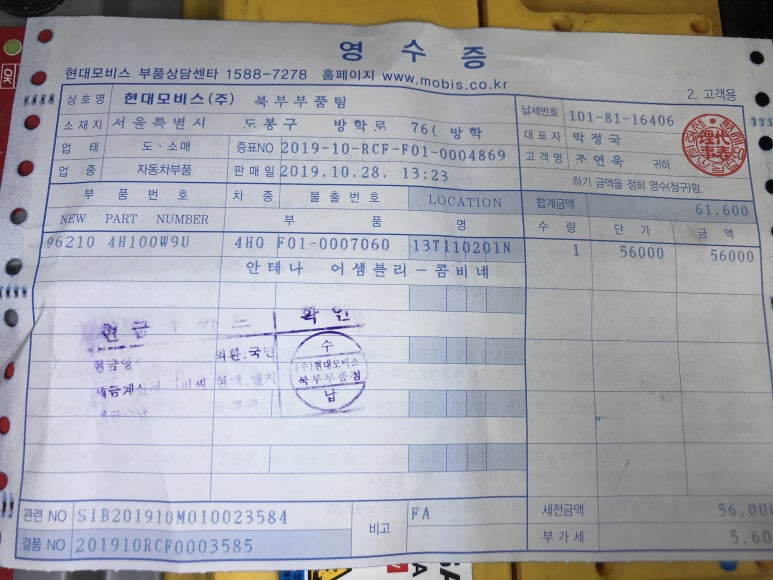 영 수 증
현대모비스 부품상담센타 1588-7278 홈페이지 www.mobis.co.kr
2. 고객용
상호명 현대모비스(주) 북부부품팀
납세번호 101-81-16406
소재지 서울특별시 도봉구 방학로 76( 방학
대표자 박정국
업 태 도·소매 증표NO 2019-10-RCF-F01-0004869
고객명 조연욱 귀하
업 종 자동차부품 판매일 2019.10.28. 13:23
하기 금액을 정히 영수(청구)함.
부 품 번 호 차 종 불출번호 LOCATION 합계금액 61,600
NEW PART NUMBER 부 품 명 수 량 단 가 금 액
96210 4H100W9U 4H0 F01-0007060 13T110201N 1 56000 56000
안테나 어셈블리-콤비네
현금 카드 확인
수
(주)현대모비스
북부부품점
납
관련 NO S1B201910M010023584 비고 FA 세전금액 56,000
결품 NO 201910RCF0003585 부가세 5,60